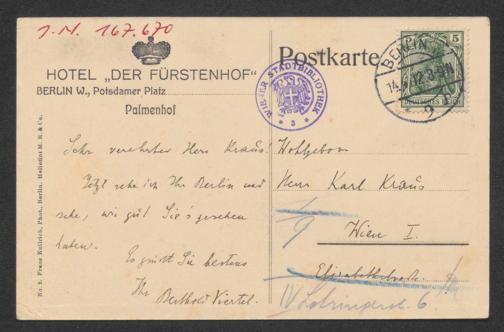 J.N. 167.670
HOTEL „DER FÜRSTENHOF“
BERLIN W., Potsdamer Platz
Palmenhof
Postkarte
WIENER STADTBIBLIOTHEK
BERLIN
14. 12. 8-9N
* 9
5
DEUTSCHES REICH
Sehr verehrter Herr Kraus!
Jetzt sehe ich Ihr Berlin und
sehe, wie gut Sie's gesehen
haben.
Es grüsst Sie bestens
Ihr Berthold Viertel.
Wohlgeboren
Herrn Karl Kraus
Wien I.
Elisabethstrasse
IV Lothringerstr. 6.
No. 2. Franz Kullrich, Phot., Berlin.